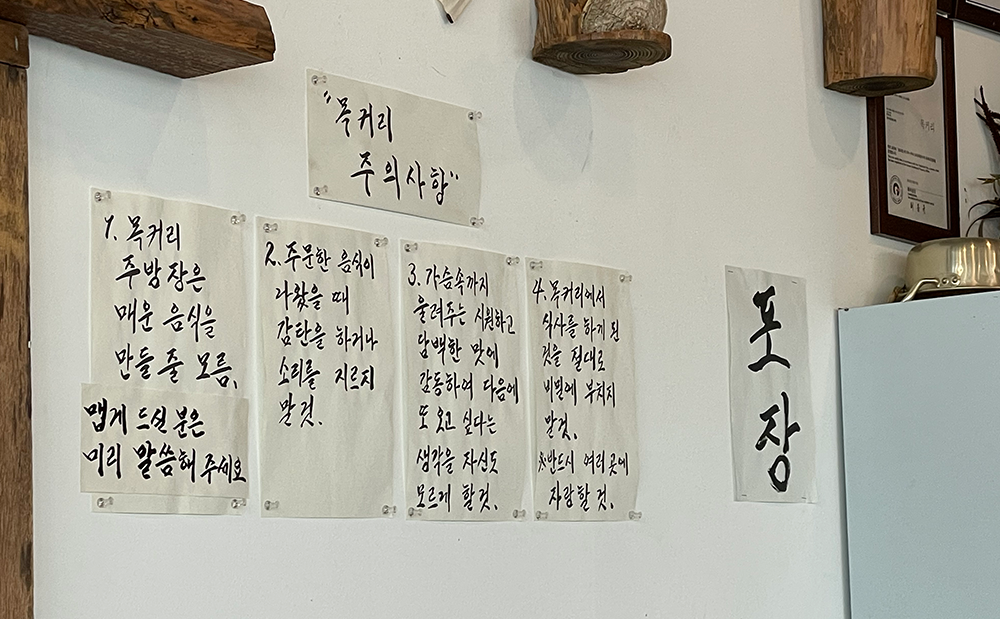 "목커리
주의사항"
1. 목커리
주방장은
매운 음식을
만들 줄 모름.
맵게 드실 분은
미리 말씀해 주세요
2. 주문한 음식이
나왔을 때
감탄을 하거나
소리를 지르지
말것.
3. 가슴속까지
울려주는 시원하고
담백한 맛에
감동하여 다음에
또 오고 싶다는
생각을 자신도
모르게 할것.
4. 목커리에서
식사를 하게 된
것을 절대로
비밀에 부치지
말것.
※반드시 여러 곳에
자랑할 것.
포장